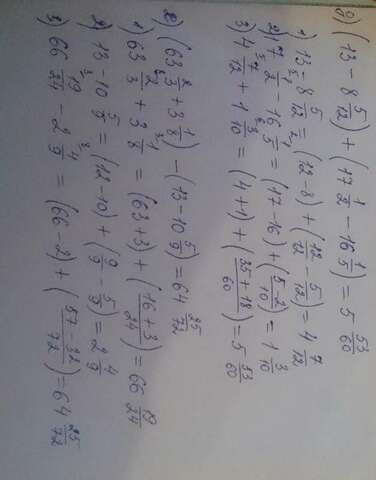 д) (13 - 8 5/12) + (17 1/2 - 16 1/5) = 5 53/60
1) 13 - 8 5/12 = (12 - 8) + (12/12 - 5/12) = 4 7/12
2) 17 1/2 - 16 1/5 = (17 - 16) + (5 - 2/10) = 1 3/10
3) 4 7/12 + 1 3/10 = (4 + 1) + (35 + 18/60) = 5 53/60
е) (63 2/3 + 3 1/8) - (13 - 10 5/9) = 64 25/72
1) 63 2/3 + 3 1/8 = (63 + 3) + (16 + 3/24) = 66 19/24
2) 13 - 10 5/9 = (12 - 10) + (9/9 - 5/9) = 2 4/9
3) 66 19/24 - 2 4/9 = (66 - 2) + (57 - 32/72) = 64 25/72